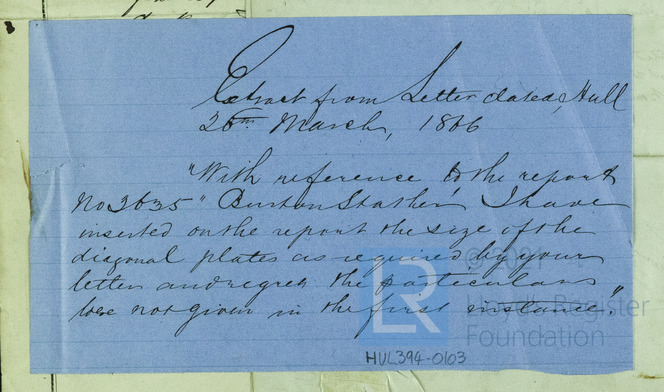 Extract from Letter dated, Hull
26th March, 1866
"With reference to the report
No 3635 "Burton Stather", I have
inserted on the report the size of the
diagonal plates as required by your
letter and regret the particulars
were not given in the first instance."
© 2021
Lloyd's Register
Foundation
LR
HUL394-0103